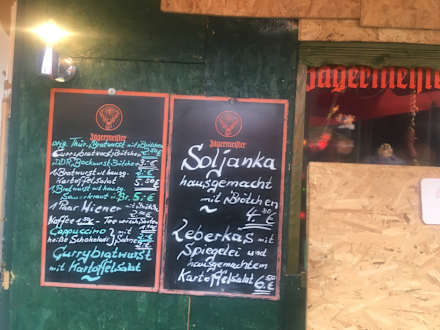 Jägermeister
Orig. Thür. Bratwurst mit Brötchen
Currybratwurst Brötchen
DDR Bockwurst Brötchen 3.-€
1 Bratwurst
Kartoffelsalat 5.50
1 Bratwurst
Sauerkraut u Br. 5.-€
1 Paar Wiener mit Brötchen
Kaffee Tee versch. Sorten
Cappuccino
heiße Schokolade Sahne
Currybratwurst
mit Kartoffelsalat
Jägermeister
Soljanka
hausgemacht
mit Brötchen
4.50 €
Leberkäs mit
Spiegelei und
hausgemachtem
Kartoffelsalat 6.50 €
Jägermeister